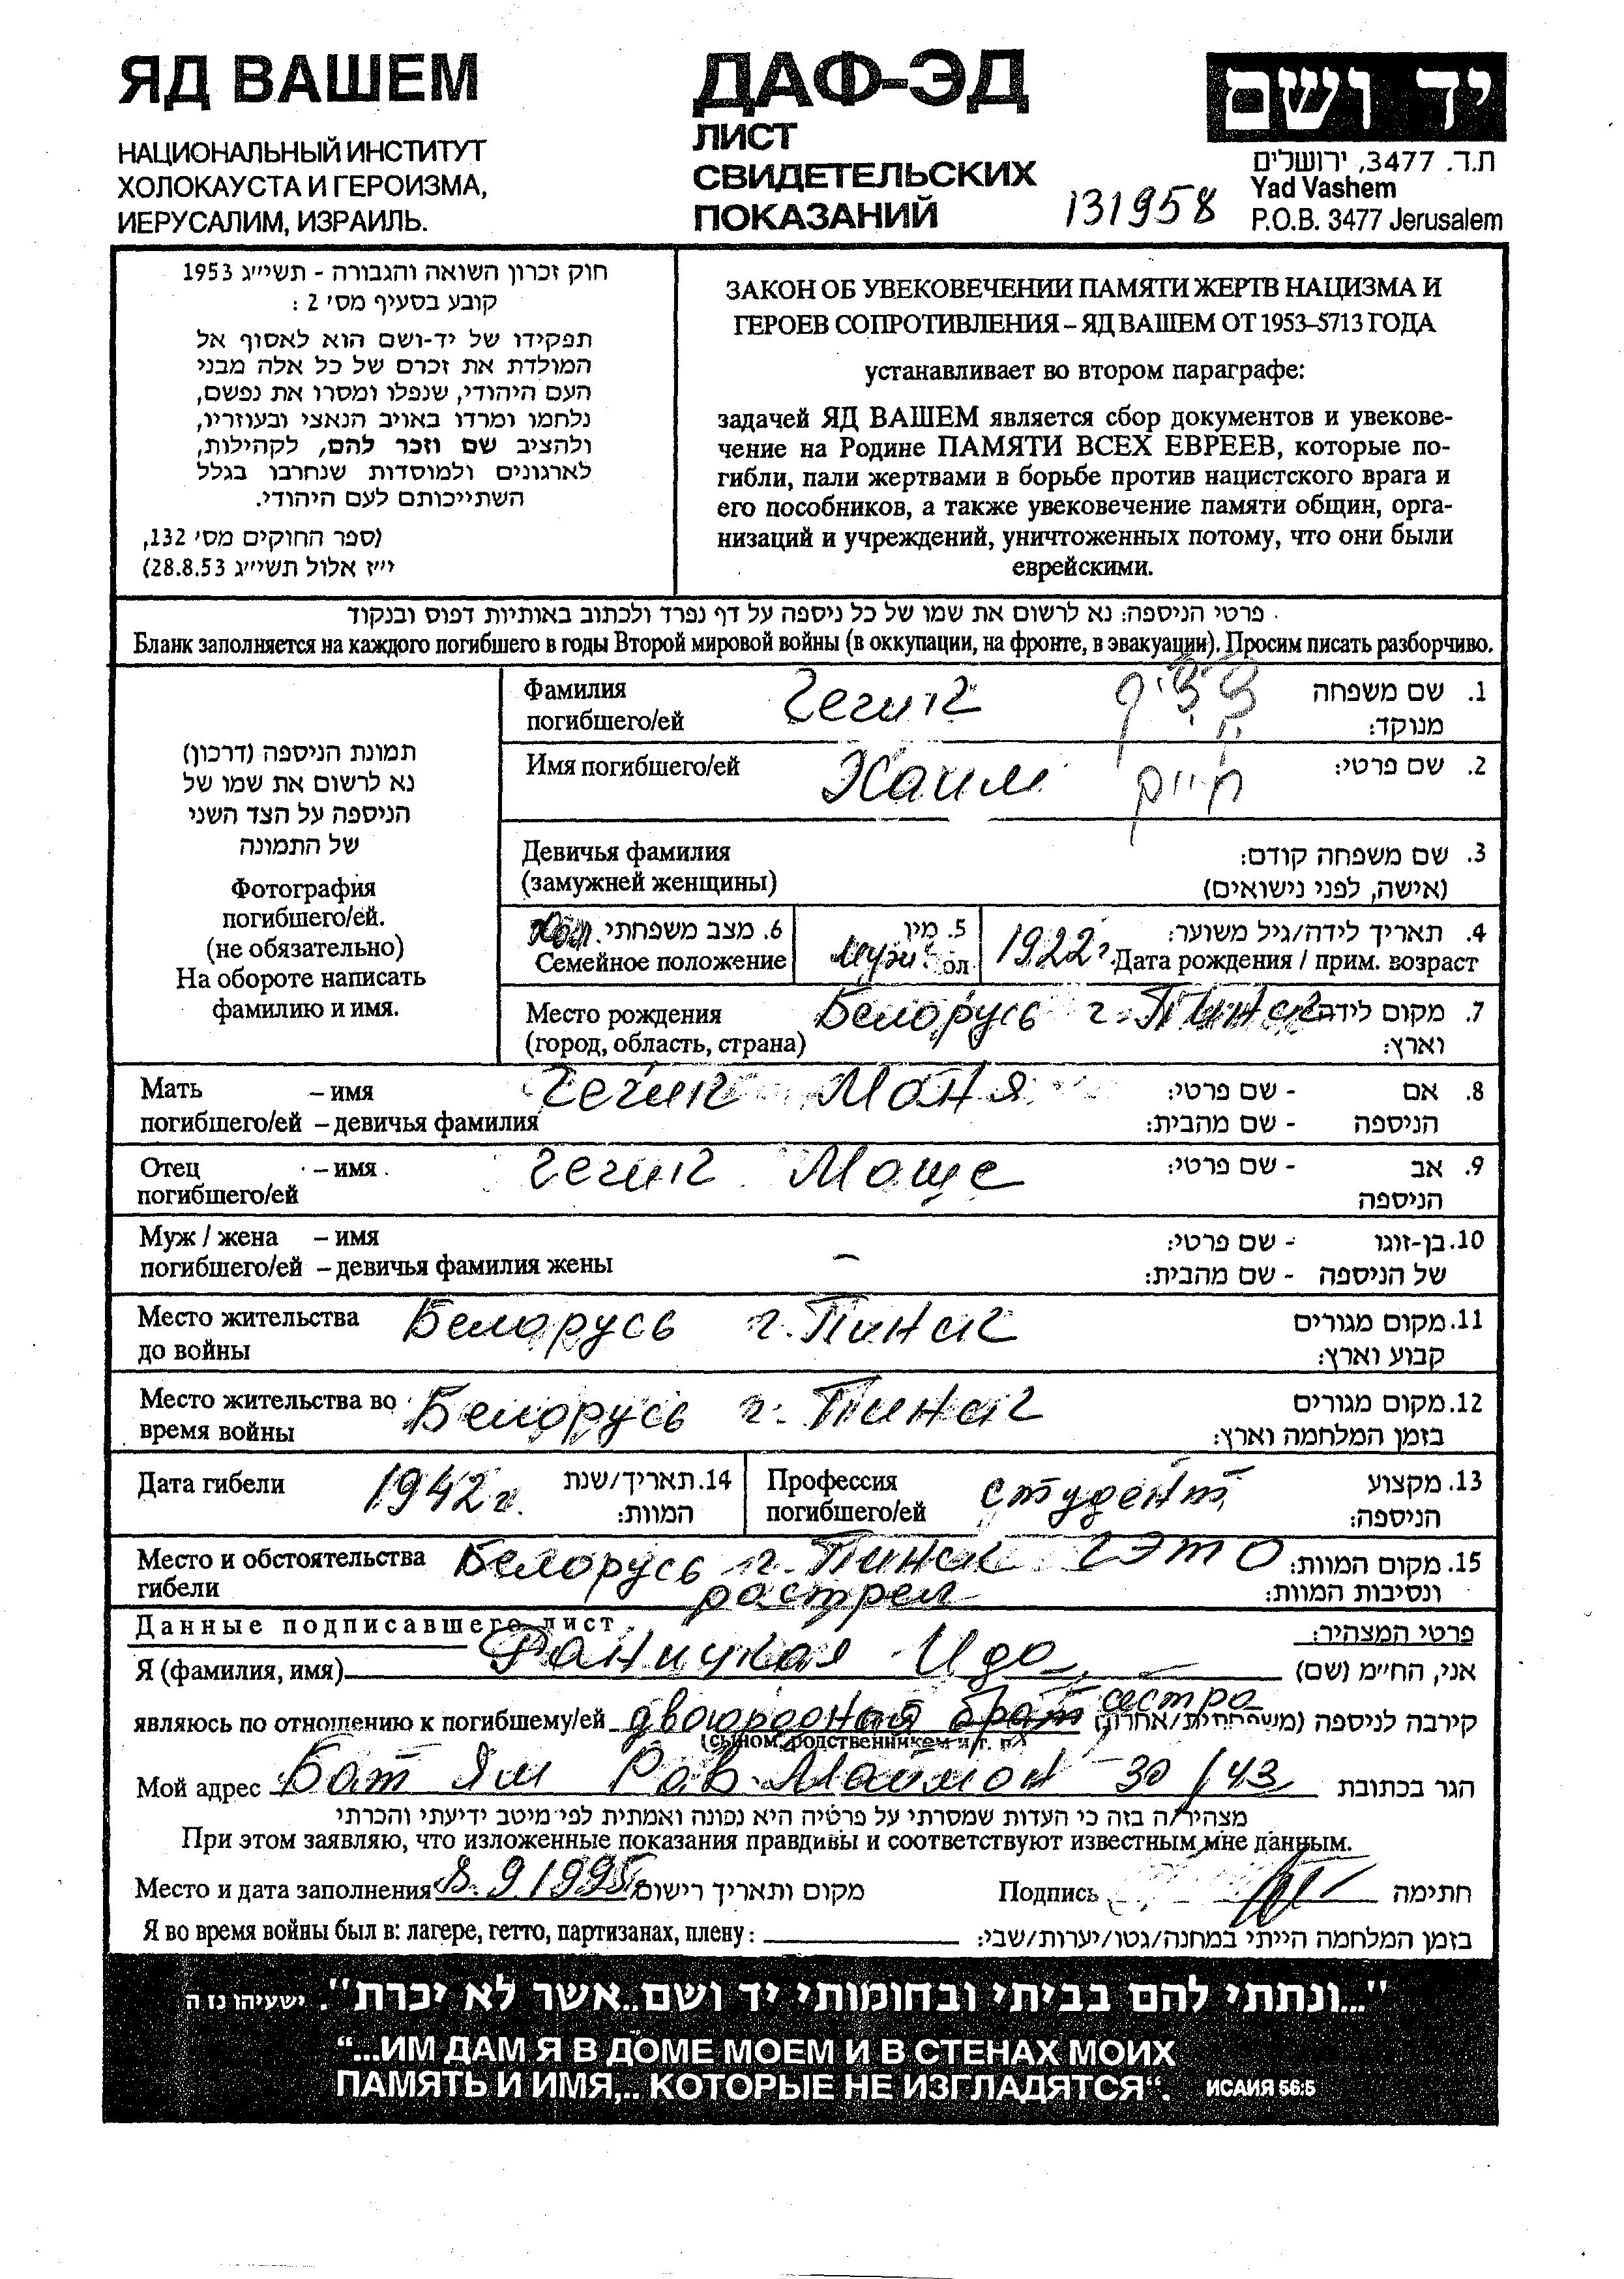 ЯД ВАШЕМ
НАЦИОНАЛЬНЫЙ ИНСТИТУТ
ХОЛОКАУСТА И ГЕРОИЗМА,
ИЕРУСАЛИМ, ИЗРАИЛЬ.
ДАФ-ЭД
ЛИСТ
СВИДЕТЕЛЬСКИХ
ПОКАЗАНИЙ
131958
יד ושם
ת.ד. 3477, ירושלים
Yad Vashem
P.O.B. 3477 Jerusalem
חוק זכרון השואה והגבורה - תשי״ג 1953
קובע בסעיף מס׳ 2 :
תפקידו של יד-ושם הוא לאסוף אל
המולדת את זכרם של כל אלה מבני
העם היהודי, שנפלו ומסרו את נפשם,
נלחמו ומרדו באויב הנאצי ובעוזריו,
ולהציב שם וזכר להם, לקהילות,
לארגונים ולמוסדות שנחרבו בגלל
השתייכותם לעם היהודי.
(ספר החוקים מס׳ 132,
י״ז אלול תשי״ג 28.8.53)
ЗАКОН ОБ УВЕКОВЕЧЕНИИ ПАМЯТИ ЖЕРТВ НАЦИЗМА И
ГЕРОЕВ СОПРОТИВЛЕНИЯ – ЯД ВАШЕМ ОТ 1953–5713 ГОДА
устанавливает во втором параграфе:
задачей ЯД ВАШЕМ является сбор документов и увекове-
чение на Родине ПАМЯТИ ВСЕХ ЕВРЕЕВ, которые по-
гибли, пали жертвами в борьбе против нацистского врага и
его пособников, а также увековечение памяти общин, орга-
низаций и учреждений, уничтоженных потому, что они были
еврейскими.
פרטי הניספה: נא לרשום את שמו של כל ניספה על דף נפרד ולכתוב באותיות דפוס ובנקוד
Бланк заполняется на каждого погибшего в годы Второй мировой войны (в оккупации, на фронте, в эвакуации). Просим писать разборчиво.
תמונת הניספה (דרכון)
נא לרשום את שמו של
הניספה על הצד השני
של התמונה
Фотография
погибшего/ей.
(не обязательно)
На обороте написать
фамилию и имя.
Фамилия Чечик 1. שם משפחה
погибшего/ей מנוקד:
Имя погибшего/ей Хаим חיים 2. שם פרטי:
Девичья фамилия 3. שם משפחה קודם:
(замужней женщины) (אישה, לפני נישואים)
6. מצב משפחתי 5. מין 4. תאריך לידה/גיל משוער:
Семейное положение муж. ол 1922г. Дата рождения / прим. возраст
Место рождения Белорусь г. Пинск 7. מקום לידה
(город, область, страна) וארץ:
Мать – имя Чечик Маня 8. אם - שם פרטי:
погибшего/ей – девичья фамилия הניספה - שם מהבית:
Отец – имя Чечик Моше 9. אב - שם פרטי:
погибшего/ей הניספה
Муж / жена – имя 10. בן-זוגו - שם פרטי:
погибшего/ей – девичья фамилия жены – של הניספה - שם מהבית:
Место жительства Белорусь г. Пинск 11. מקום מגורים
до войны קבוע וארץ:
Место жительства во Белорусь г. Пинск 12. מקום מגורים
время войны בזמן המלחמה וארץ:
Дата гибели 1942г. 14. תאריך/שנת המוות:
Профессия студент 13. מקצוע
погибшего/ей הניספה:
Место и обстоятельства Белорусь г. Пинск гэто 15. מקום המוות:
гибели растрел ונסיבות המוות:
Данные подписавшего лист פרטי המצהיר:
Я (фамилия, имя) Раницкая Ида אני, הח״מ (שם)
являюсь по отношению к погибшему/ей двоюродная брат сестра קירבה לניספה (משפחתית/אחרת)
(сыном, родственником и т. п.)
Мой адрес Бат Ям Рав Маймон 30/43 הגר בכתובת
מצהיר/ה בזה כי העדות שמסרתי על פרטיה היא נכונה ואמתית לפי מיטב ידיעתי והכרתי
При этом заявляю, что изложенные показания правдивы и соответствуют известным мне данным.
Место и дата заполнения 8.9 1995 מקום ותאריך רישום Подпись חתימה
Я во время войны был в: лагере, гетто, партизанах, плену: בזמן המלחמה הייתי במחנה/גטו/יערות/שבי:
"...ונתתי להם בביתי ובחומותי יד ושם..אשר לא יכרת". ישעיהו נו ה
“...ИМ ДАМ Я В ДОМЕ МОЕМ И В СТЕНАХ МОИХ
ПАМЯТЬ И ИМЯ,.. КОТОРЫЕ НЕ ИЗГЛАДЯТСЯ“. ИСАИЯ 56:5